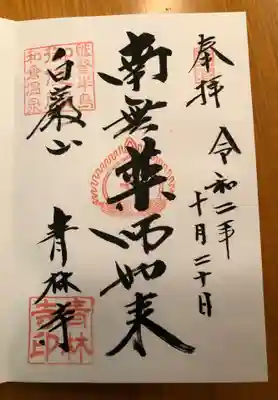 奉拝
令和二年
十月二十日
南無薬師如来
能登半島
和倉温泉
白巌山
青林寺
青林
寺印